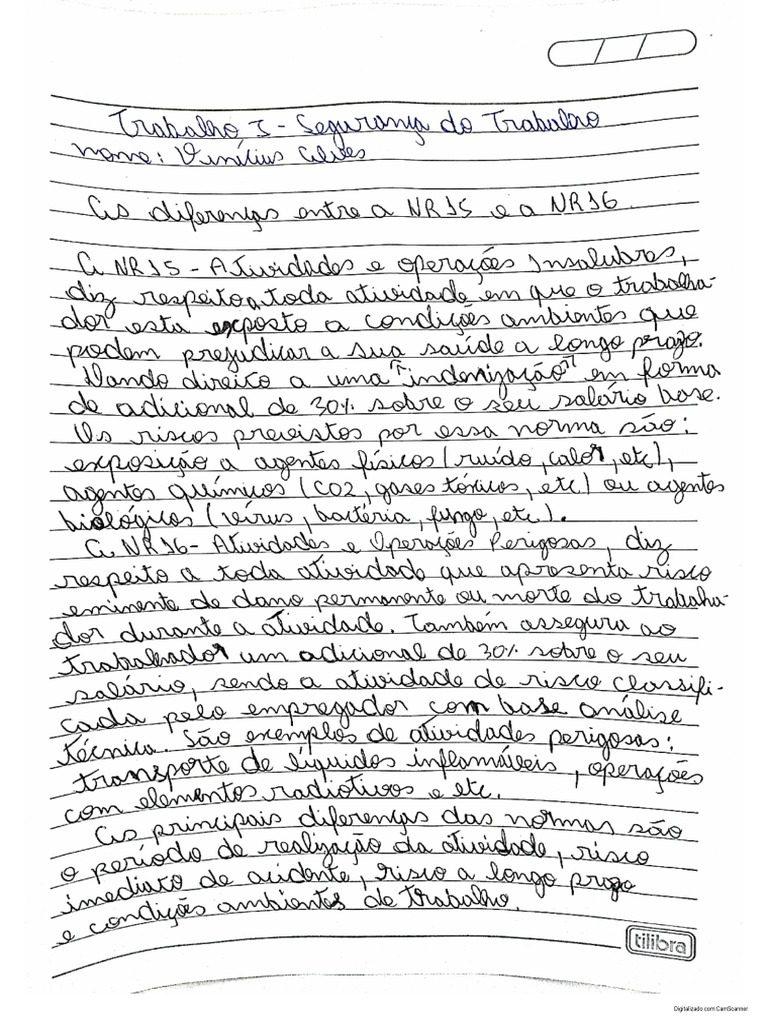 Trabalho I - Segurança do Trabalho
Nome: Vinícius Alves
As diferenças entre a NR15 e a NR16.
A NR15 - Atividades e operações Insalubres,
diz respeito a toda atividade em que o trabalha-
dor esta exposto a condições ambientes que
podem prejudicar a sua saúde a longo prazo.
Dando direito a uma "indenização" em forma
de adicional de 30% sobre o seu salário base.
Os riscos previstos por essa norma são:
exposição a agentes físicos (ruído, calor, etc),
agentes químicos (CO2, gases tóxicos, etc.) ou agentes
biológicos (vírus, bactéria, fungo, etc.).
A NR16 - Atividades e Operações Perigosas, diz
respeito a toda atividade que apresenta risco
eminente de dano permanente ou morte do trabalha-
dor durante a atividade. Também assegura ao
trabalhador um adicional de 30% sobre o seu
salário, sendo a atividade de risco classifi-
cada pelo empregador com base análise
técnica. São exemplos de atividades perigosas:
transporte de líquidos inflamáveis, operações
com elementos radiotivos e etc.
As principais diferenças das normas são
o período de realização da atividade, risco
imediato de acidente, risco a longo prazo
e condições ambientes de trabalho.
tilibra
Digitalizado com CamScanner